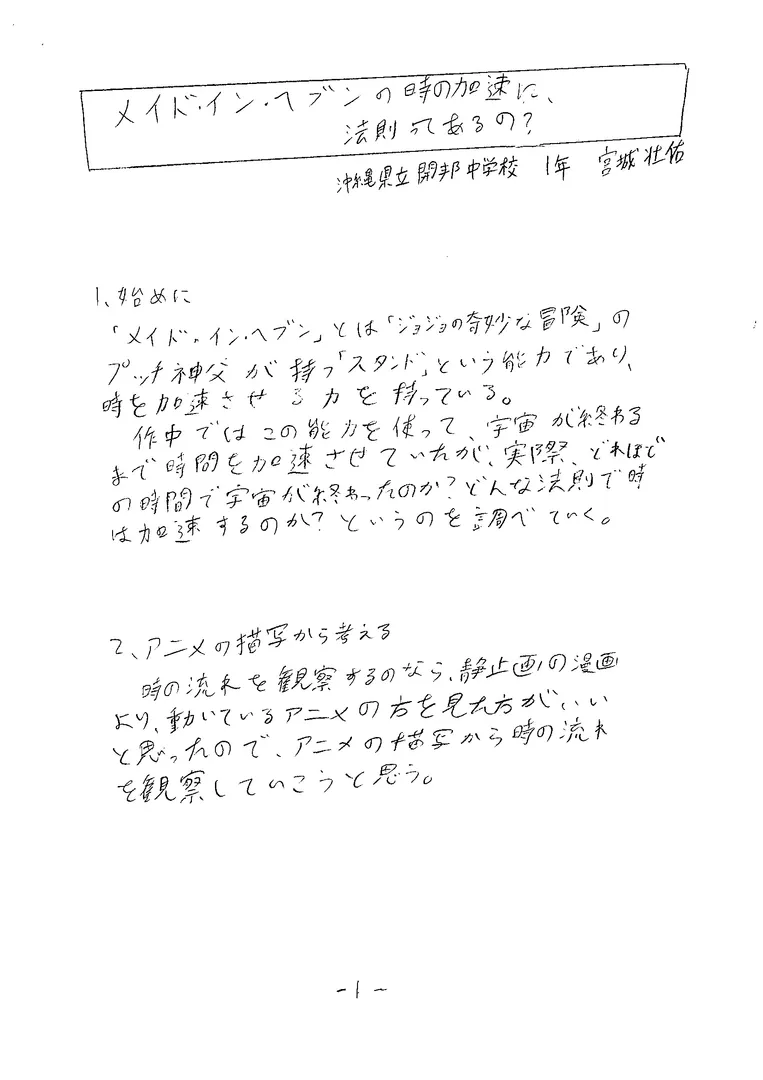 メイド・イン・ヘブンの時の加速に、
法則ってあるの？
沖縄県立開邦中学校 1年 宮城壮佑
1、始めに
「メイド・イン・ヘブン」とは「ジョジョの奇妙な冒険」の
プッチ神父が持つ「スタンド」という能力であり、
時を加速させる力を持っている。
作中ではこの能力を使って、宇宙が終わる
まで時間を加速させていたが、実際、どれほど
の時間で宇宙が終わったのか？どんな法則で時
は加速するのか？というのを調べていく。
2、アニメの描写から考える
時の流れを観察するのなら、静止画の漫画
より、動いているアニメの方を見た方がいい
と思ったので、アニメの描写から時の流れ
を観察していこうと思う。
-1-